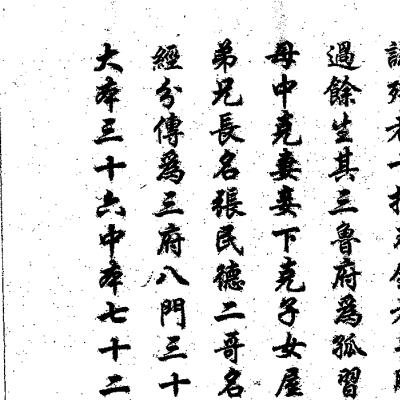 過餘生其三魯府爲孤習
母中克妻妾下克子女屋
弟兄長名張民德二哥名
經分傳爲三府八門三十
大本三十六中本七十二